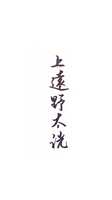 上遠野太洸